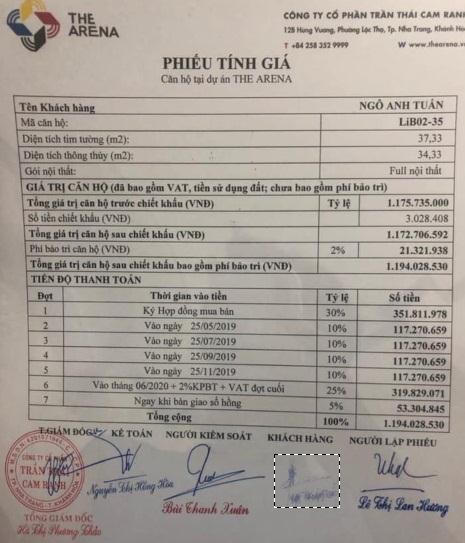 THE
ARENA
CÔNG TY CỔ PHẦN TRẦN THÁI CAM RANH
128 Hùng Vương, Phường Lộc Thọ, Tp. Nha Trang, Khánh Hoà
T +84 258 352 9999 W www.thearena.
PHIẾU TÍNH GIÁ
Căn hộ tại dự án THE ARENA
Tên Khách hàng NGÔ ANH TUẤN
Mã căn hộ: LiB02-35
Diện tích tim tường (m2): 37,33
Diện tích thông thủy (m2): 34,33
Gói nội thất: Full nội thất
GIÁ TRỊ CĂN HỘ (đã bao gồm VAT, tiền sử dụng đất; chưa bao gồm phí bảo trì)
Tổng giá trị căn hộ trước chiết khấu (VNĐ) Tỷ lệ 1.175.735.000
Số tiền chiết khấu (VNĐ) 3.028.408
Tổng giá trị căn hộ sau chiết khấu (VNĐ) 1.172.706.592
Phí bảo trì căn hộ (VNĐ) 2% 21.321.938
Tổng giá trị căn hộ sau chiết khấu bao gồm phí bảo trì (VNĐ) 1.194.028.530
TIẾN ĐỘ THANH TOÁN
Đợt Thời gian vào tiền Tỷ lệ Số tiền
1 Ký Hợp đồng mua bán 30% 351.811.978
2 Vào ngày 25/05/2019 10% 117.270.659
3 Vào ngày 25/07/2019 10% 117.270.659
4 Vào ngày 25/09/2019 10% 117.270.659
5 Vào ngày 25/11/2019 10% 117.270.659
6 Vào tháng 06/2020 + 2%KPBT + VAT đợt cuối 25% 319.829.071
7 Ngay khi bàn giao sổ hồng 5% 53.304.845
Tổng cộng 100% 1.194.028.530
T.GIÁM ĐỐC KẾ TOÁN NGƯỜI KIỂM SOÁT KHÁCH HÀNG NGƯỜI LẬP PHIẾU
CÔNG TY CỔ PHẦN
TRẦN THÁI
CAM RANH
TP. NHA TRANG - T. KHÁNH HÒA
Nguyễn Thị Hồng Hòa
Bùi Thanh Xuân
Lê Thị Lan Hương
TỔNG GIÁM ĐỐC
Hà Thị Phương Thảo